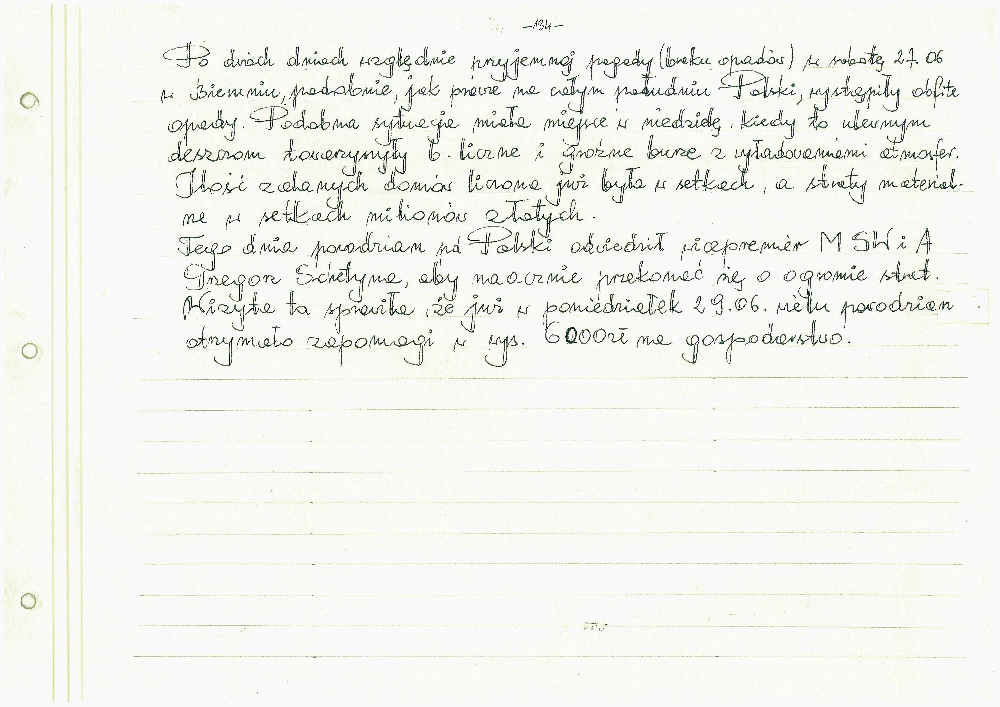 -134-
Po dwóch dniach względnie przyjemnej pogody (braku opadów) w sobotę 27.06
w Biemniu, podobnie, jak prawie na całym południu Polski, wystąpiły obfite
opady. Podobna sytuacja miała miejsce w niedzielę. Kiedy to ulewnym
deszczom towarzyszyły b. liczne i groźne burze z wyładowaniami atmosfer.
Ilość zalanych domów liczona już była w setkach, a straty material-
ne w setkach milionów złotych.
Tego dnia powodzian na Polski odwiedził wicepremier MSWiA
Grzegorz Schetyna, aby naocznie przekonać się o ogromie strat.
Wizyta ta sprawiła, że już w poniedziałek 29.06. wielu powodzian
otrzymało zapomogi w wys. 6000zł na gospodarstwo.